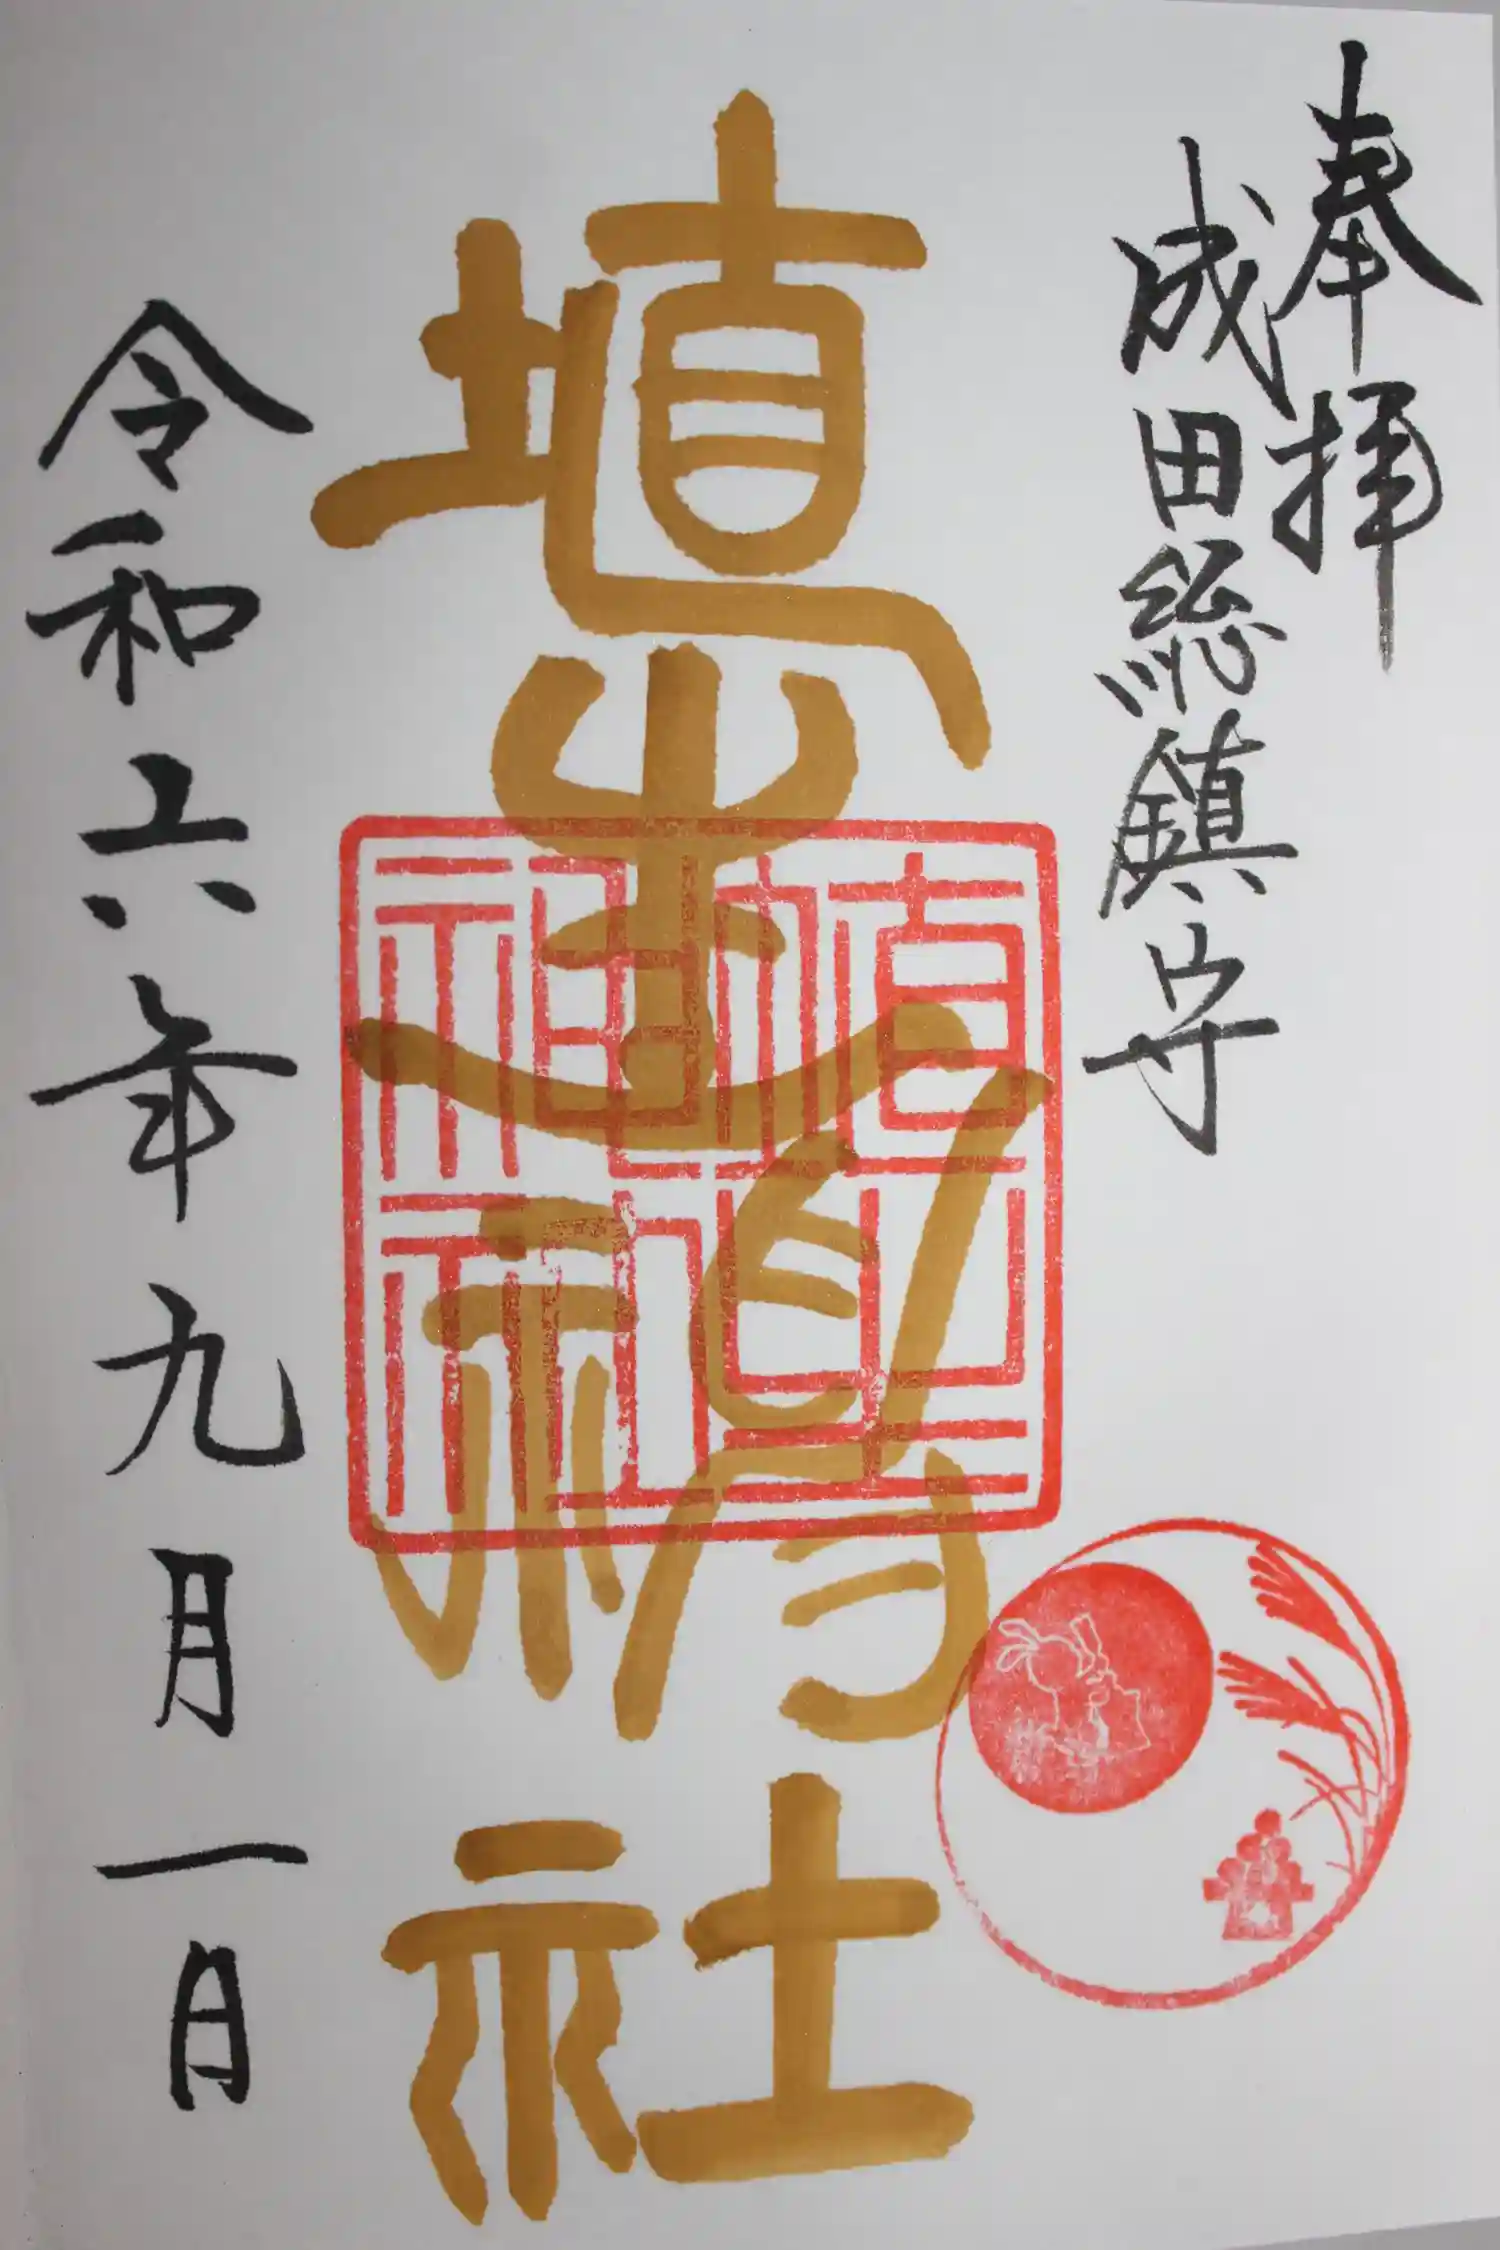 奉拝
成田総鎮守
埴生神社
埴生神社
令和六年九月一日